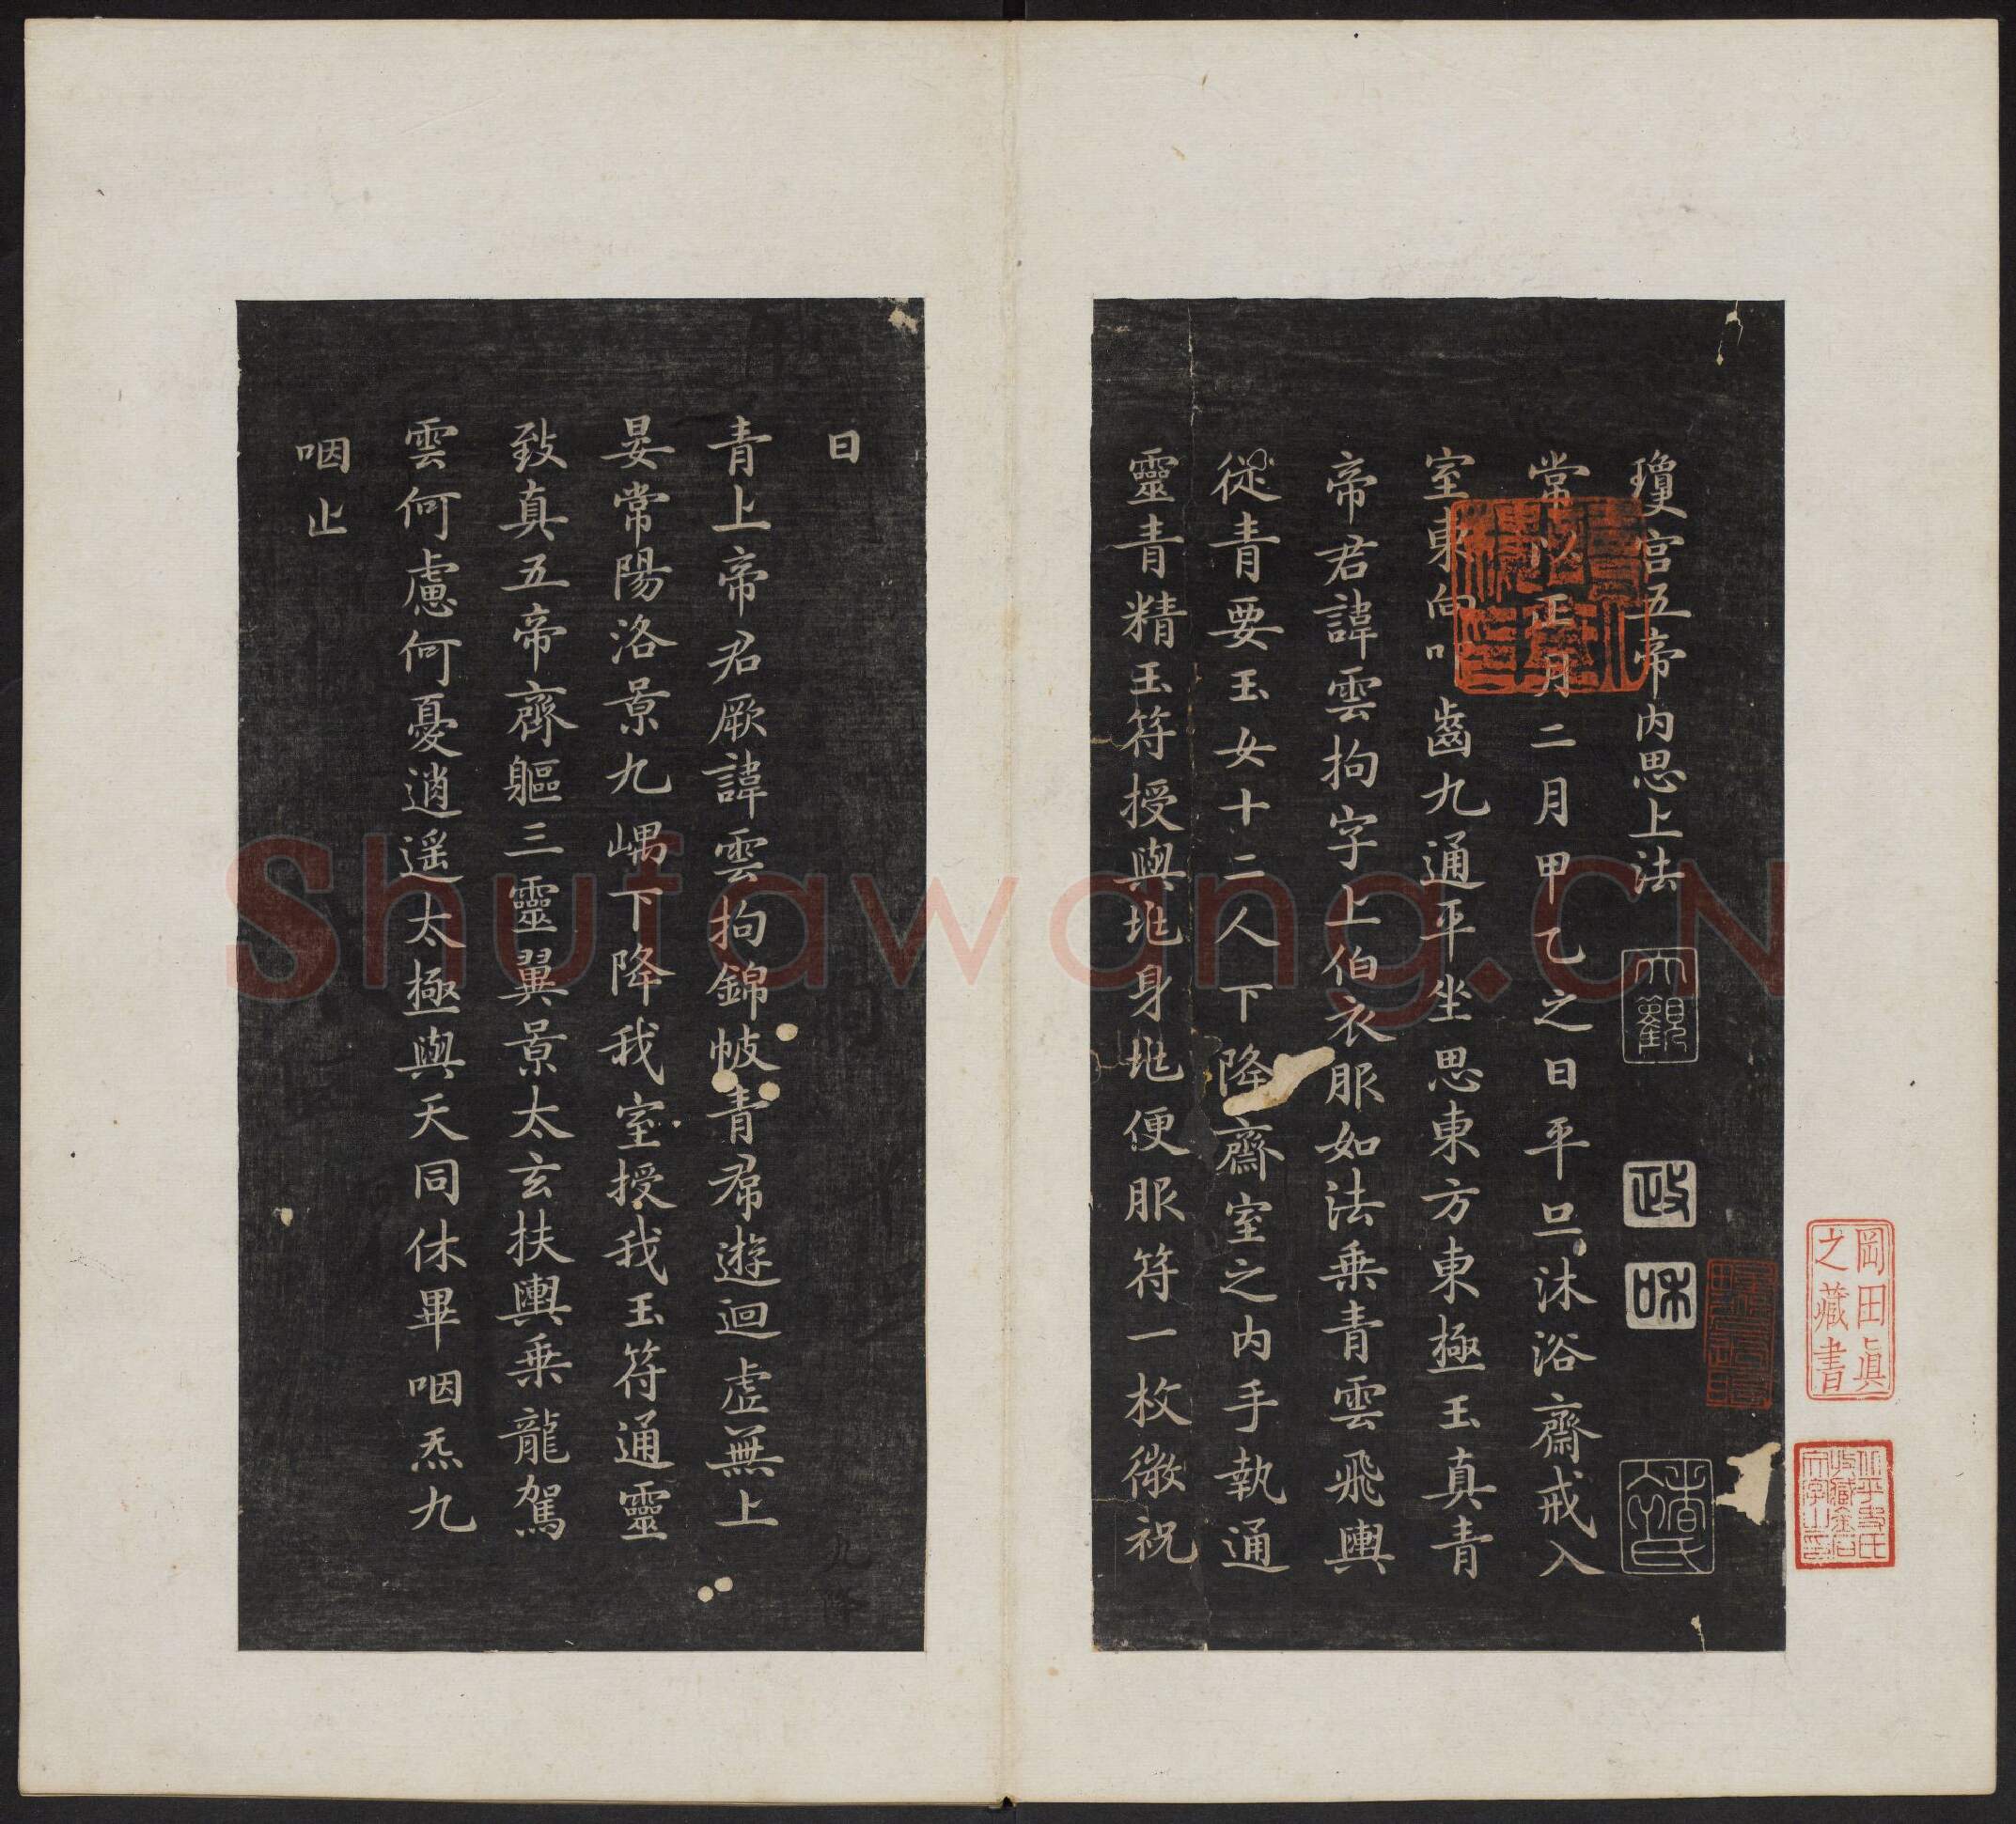 瓊宮五帝內思上法
大觀
政
和
常以正月二月甲乙之日平旦沐浴齋戒入
室東向叩齒九通平坐思東方東極玉真青
帝君諱雲拘字上伯衣服如法乘青雲飛輿
從青要玉女十二人下降齋室之內手執通
靈青精玉符授與地身地便服符一枚微祝
曰
青上帝君厥諱雲拘錦帔青帬遊迴虛無上
晏常陽洛景九嵎下降我室授我玉符通靈
致真五帝齊軀三靈翼景太玄扶輿乘龍駕
雲何慮何憂逍遙太極與天同休畢咽炁九
咽止
岡田眞
之藏書
Shufawang.CN